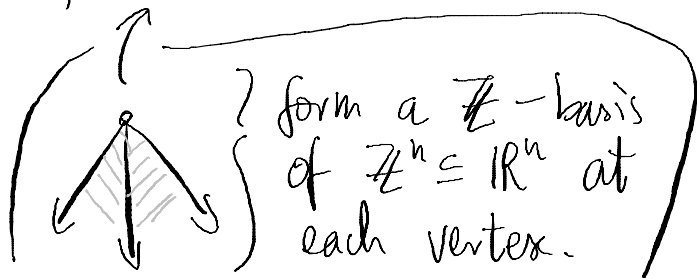 form a ℤ-basis
of ℤⁿ ⊆ ℝⁿ at
each vertex.